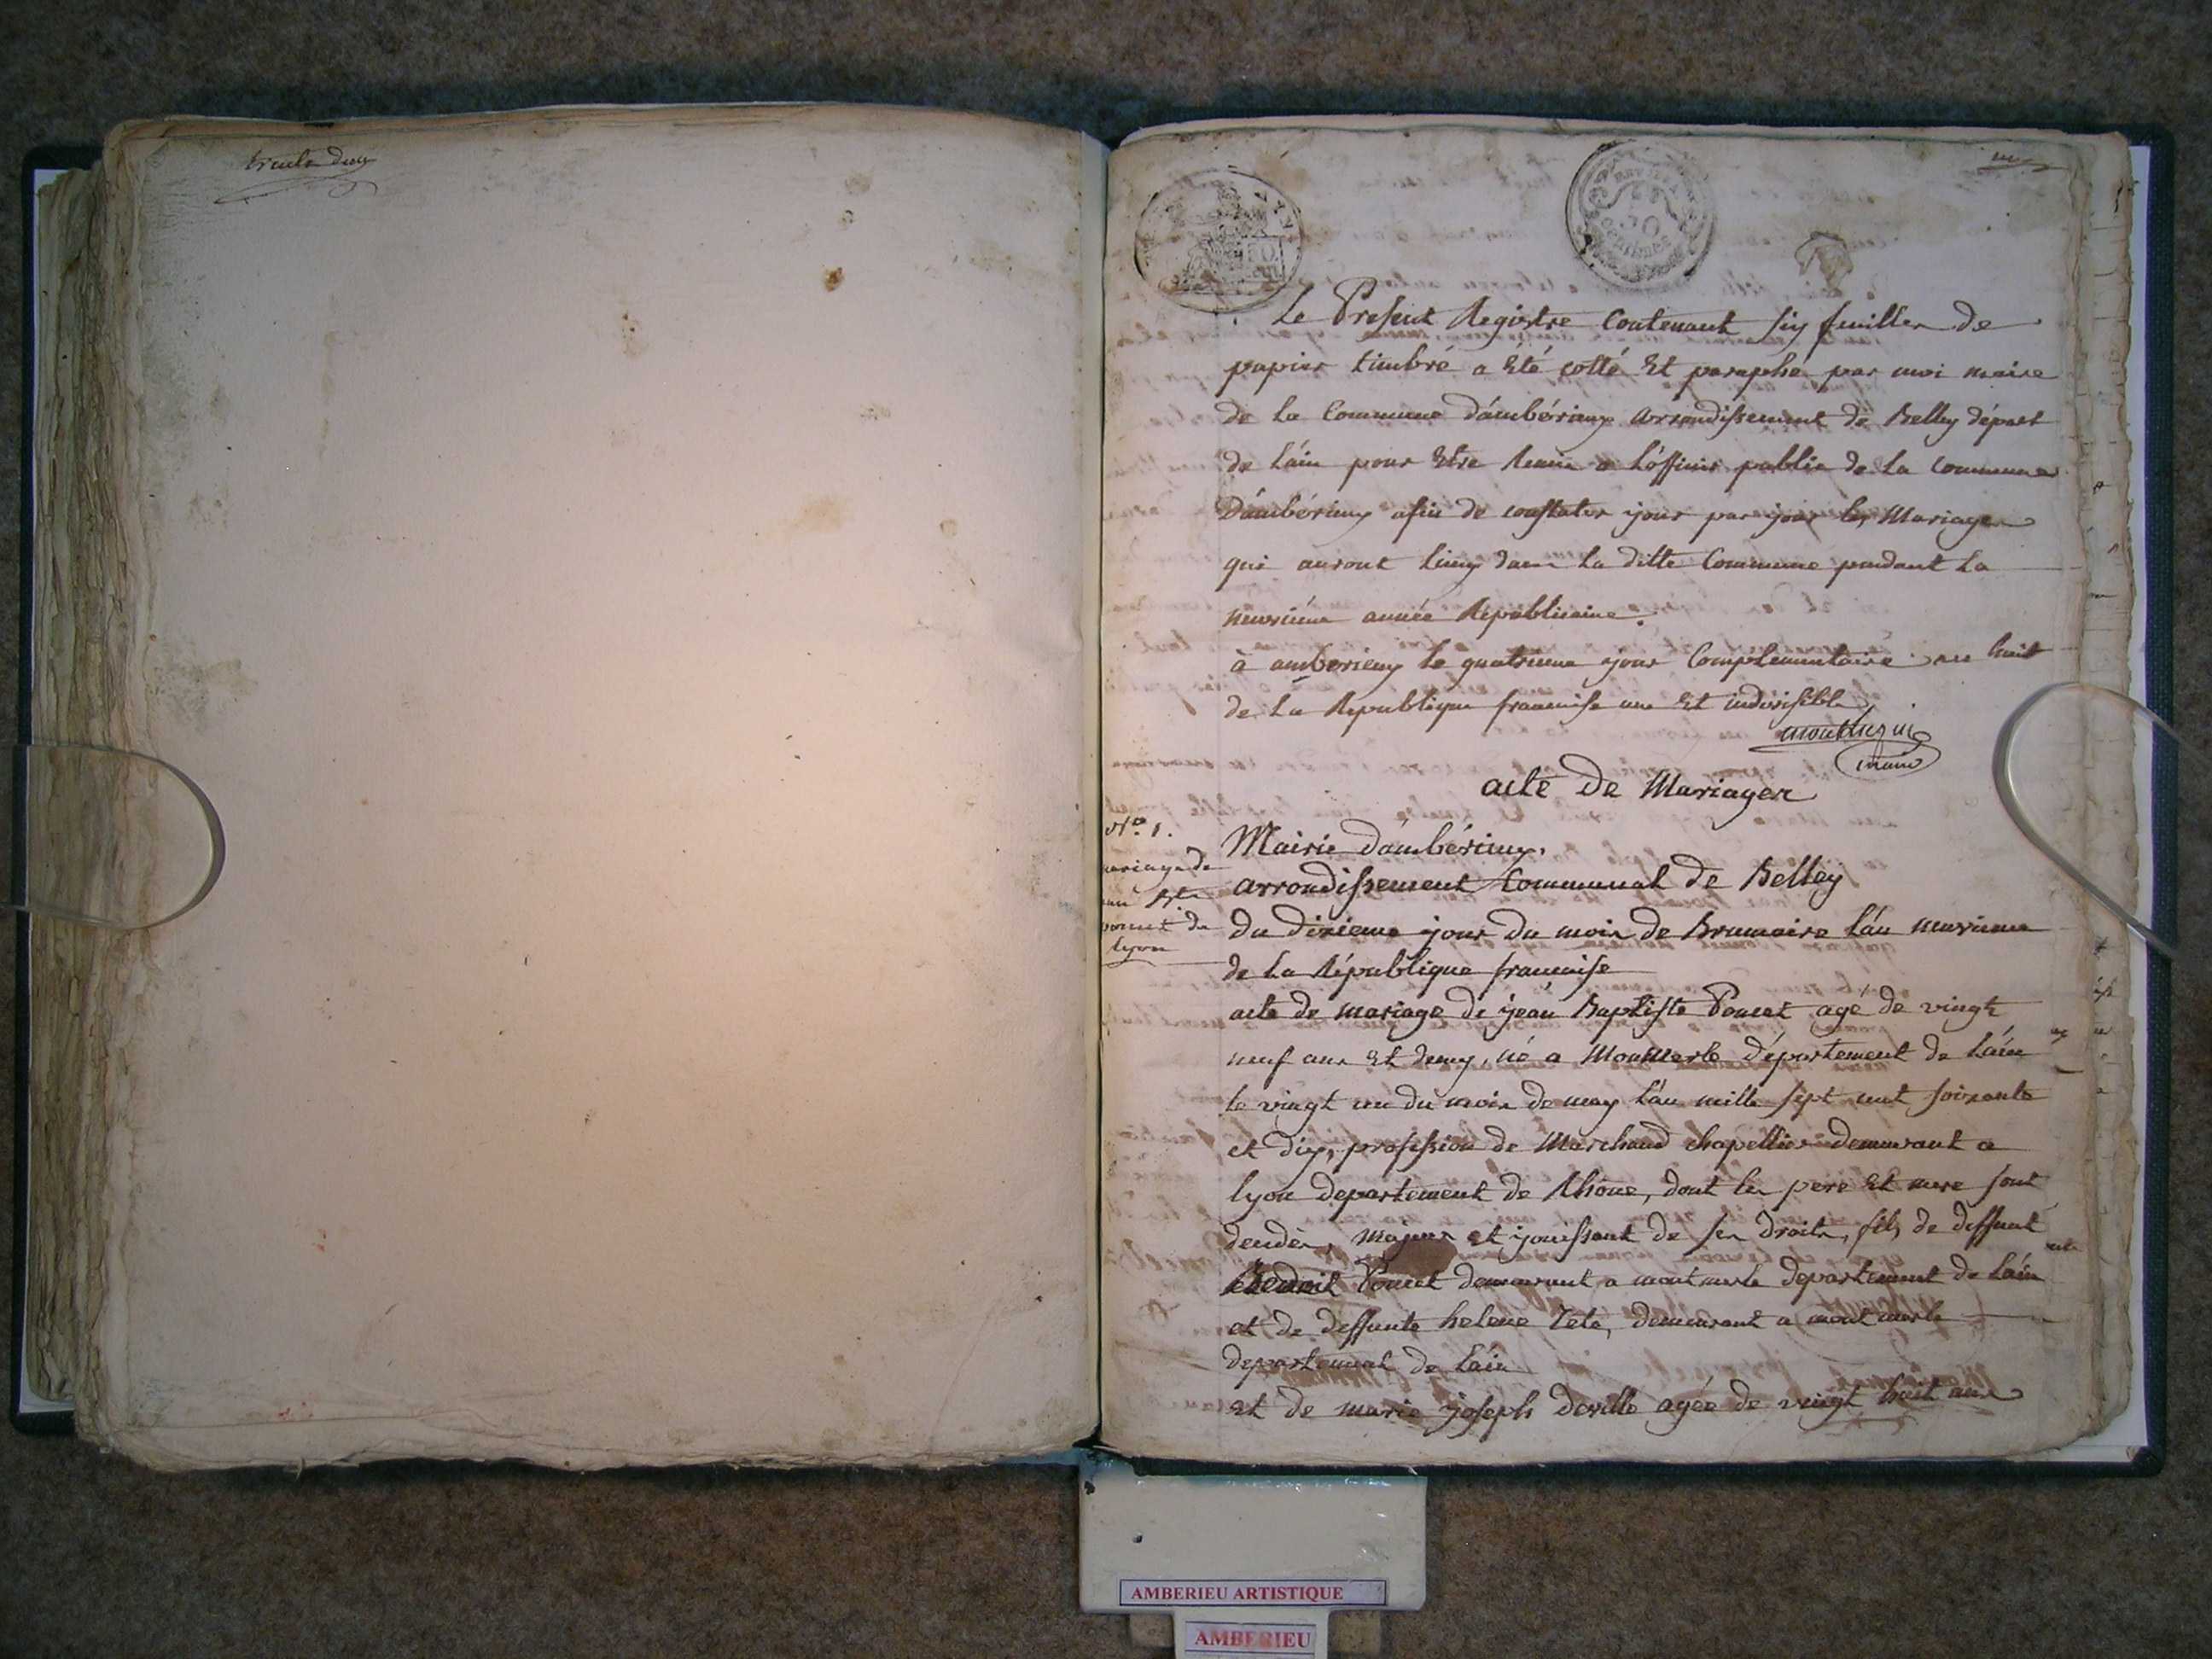 trente deux
un
50
Le Present Registre Contenant six feuilles de
papier timbré a été cotté et paraphé par moi maire
de la Commune d'ambérieux arrondissement de Belley départ
de l'ain pour être remis a l'officier public de la commune
d'ambérieux afin de constater jour par jour les Mariages
qui auront lieux dans la ditte Commune pendant la
neuvieme année Républicaine.
à amberieux le quatrieme jour Complementaire an huit
de la Republique francaise une et indivisible
maire
acte de Mariages
N.º 1.
Mairie d'ambérieux,
arrondissement Communal de Belley
du dixieme jour du mois de Brumaire l'an neuvieme
de la République francaise
ariage de
Bte
poncet de
lyon
acte de mariage de jean Baptiste Poncet agé de vingt
neuf ans et demy, né a Montmerle département de l'ain
le vingt un du mois de may l'an mille sept cent soixante
et dix, profession de Marchand chapellier demeurant a
lyon departement de Rhône, dont les pere et mere sont
decedés, majeur et jouissant de ses droits, fils de deffunt
Benoit Poncet demeurant a montmerle departement de l'ain
et de deffunte helene Tete, demeurant a montmerle
departement de l'ain
et de marie joseph deville agée de vingt huit ans
AMBERIEU ARTISTIQUE
AMBERIEU